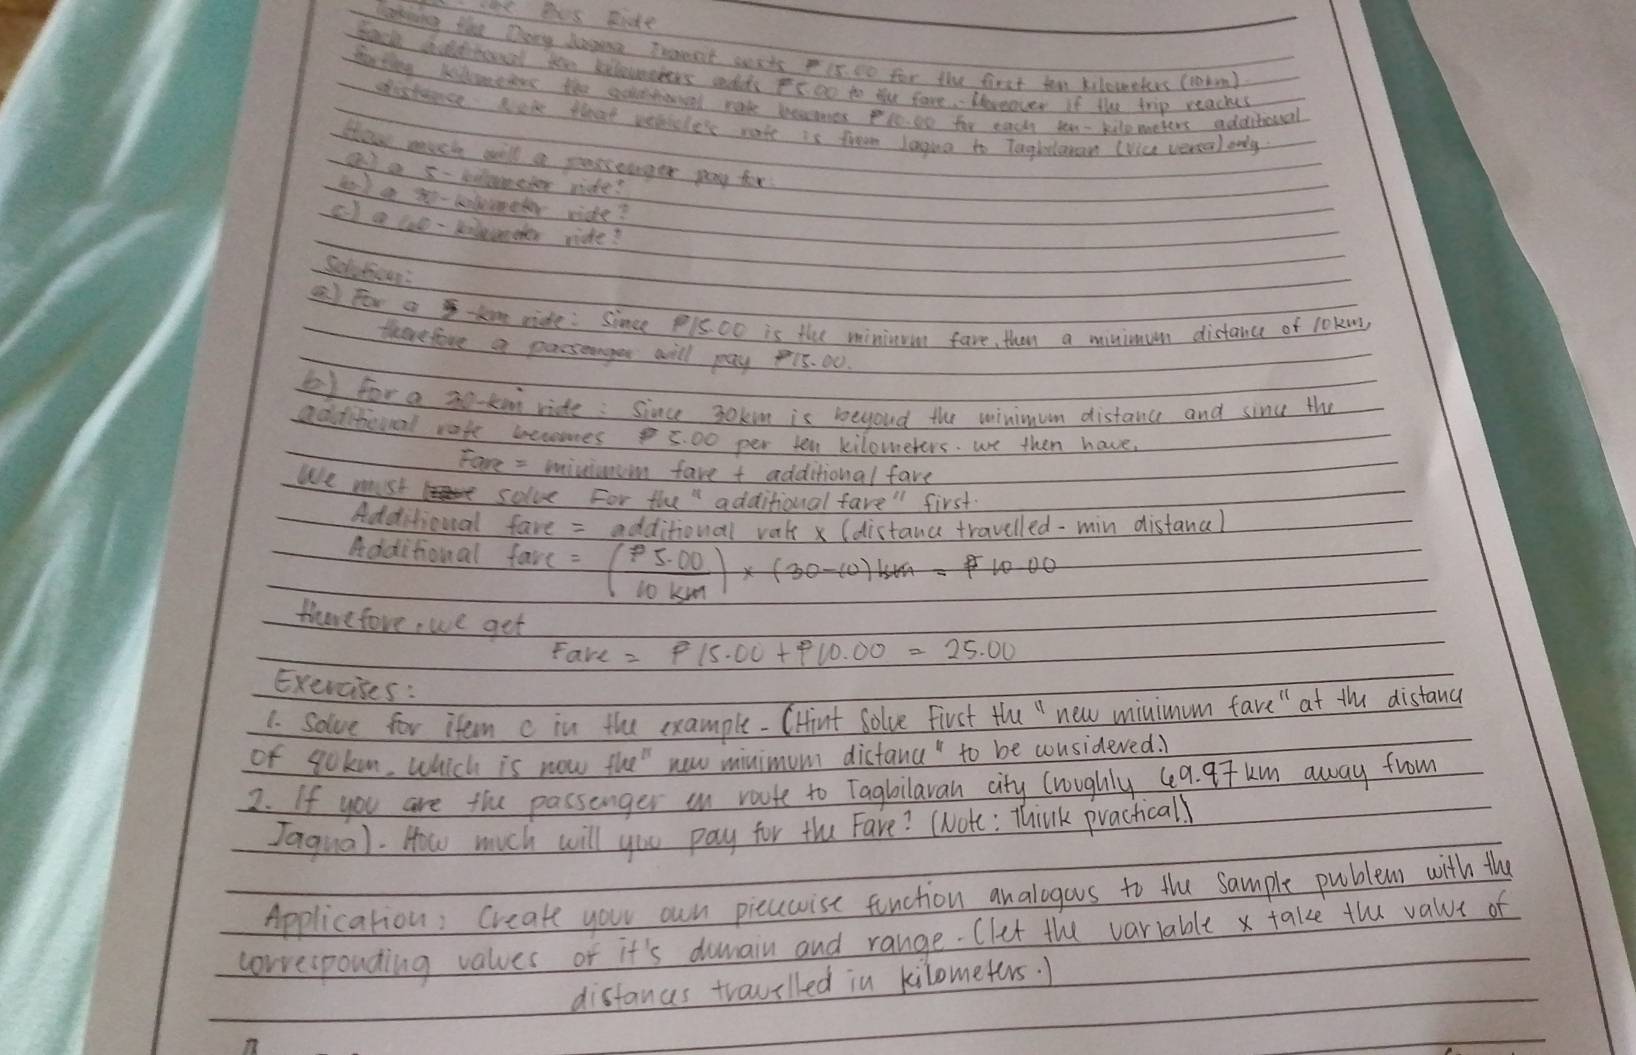 the Bus Ride
Taking the Dory Jagna Transit costs ₱15.00 for the first ten kilometers (10km).
Each additional ten kilometers adds ₱5.00 to the fare. Moreover if the trip reaches
kilometers the additional rate becomes ₱10.00 for each ten-kilometers additional
distance. Note that vehicle's rate is from Jagna to Tagbilaran (vice versa) only.
How much will a passenger pay for:
a.) a 5-kilometer ride?
b.) a 30-kilometer ride?
c.) a -kilometer ride?
Solution:
a) For a 5-km ride: Since ₱15.00 is the mininum fare, then a minimum distance of 10km,
therefore a passenger will pay ₱15.00.
b) For a 30-km ride: Since 30km is beyond the minimum distance and since the
additional rate becomes ₱5.00 per ten kilometers. we then have,
Fare = minimum fare + additional fare
We must solve For the "additional fare" first.
Additional fare = additional rate x (distance travelled - min distance)
Additional fare = (₱5.00 / 10 km) x (30-10) km = ₱10.00
therefore, we get
Fare = ₱15.00 + ₱10.00 = 25.00
Exercises:
1. Solve for item c in the example. (Hint Solve First the "new minimum fare" at the distance
of 40km. Which is now the "new minimum distance" to be considered.)
2. If you are the passenger en route to Tagbilaran city (roughly 69.97 km away from
Jagna). How much will you pay for the Fare? (Note: Think practical.)
Application: Create your own piecewise function analogous to the sample problem with the
corresponding values of it's domain and range. (let the variable x take the value of
distances travelled in kilometers.)